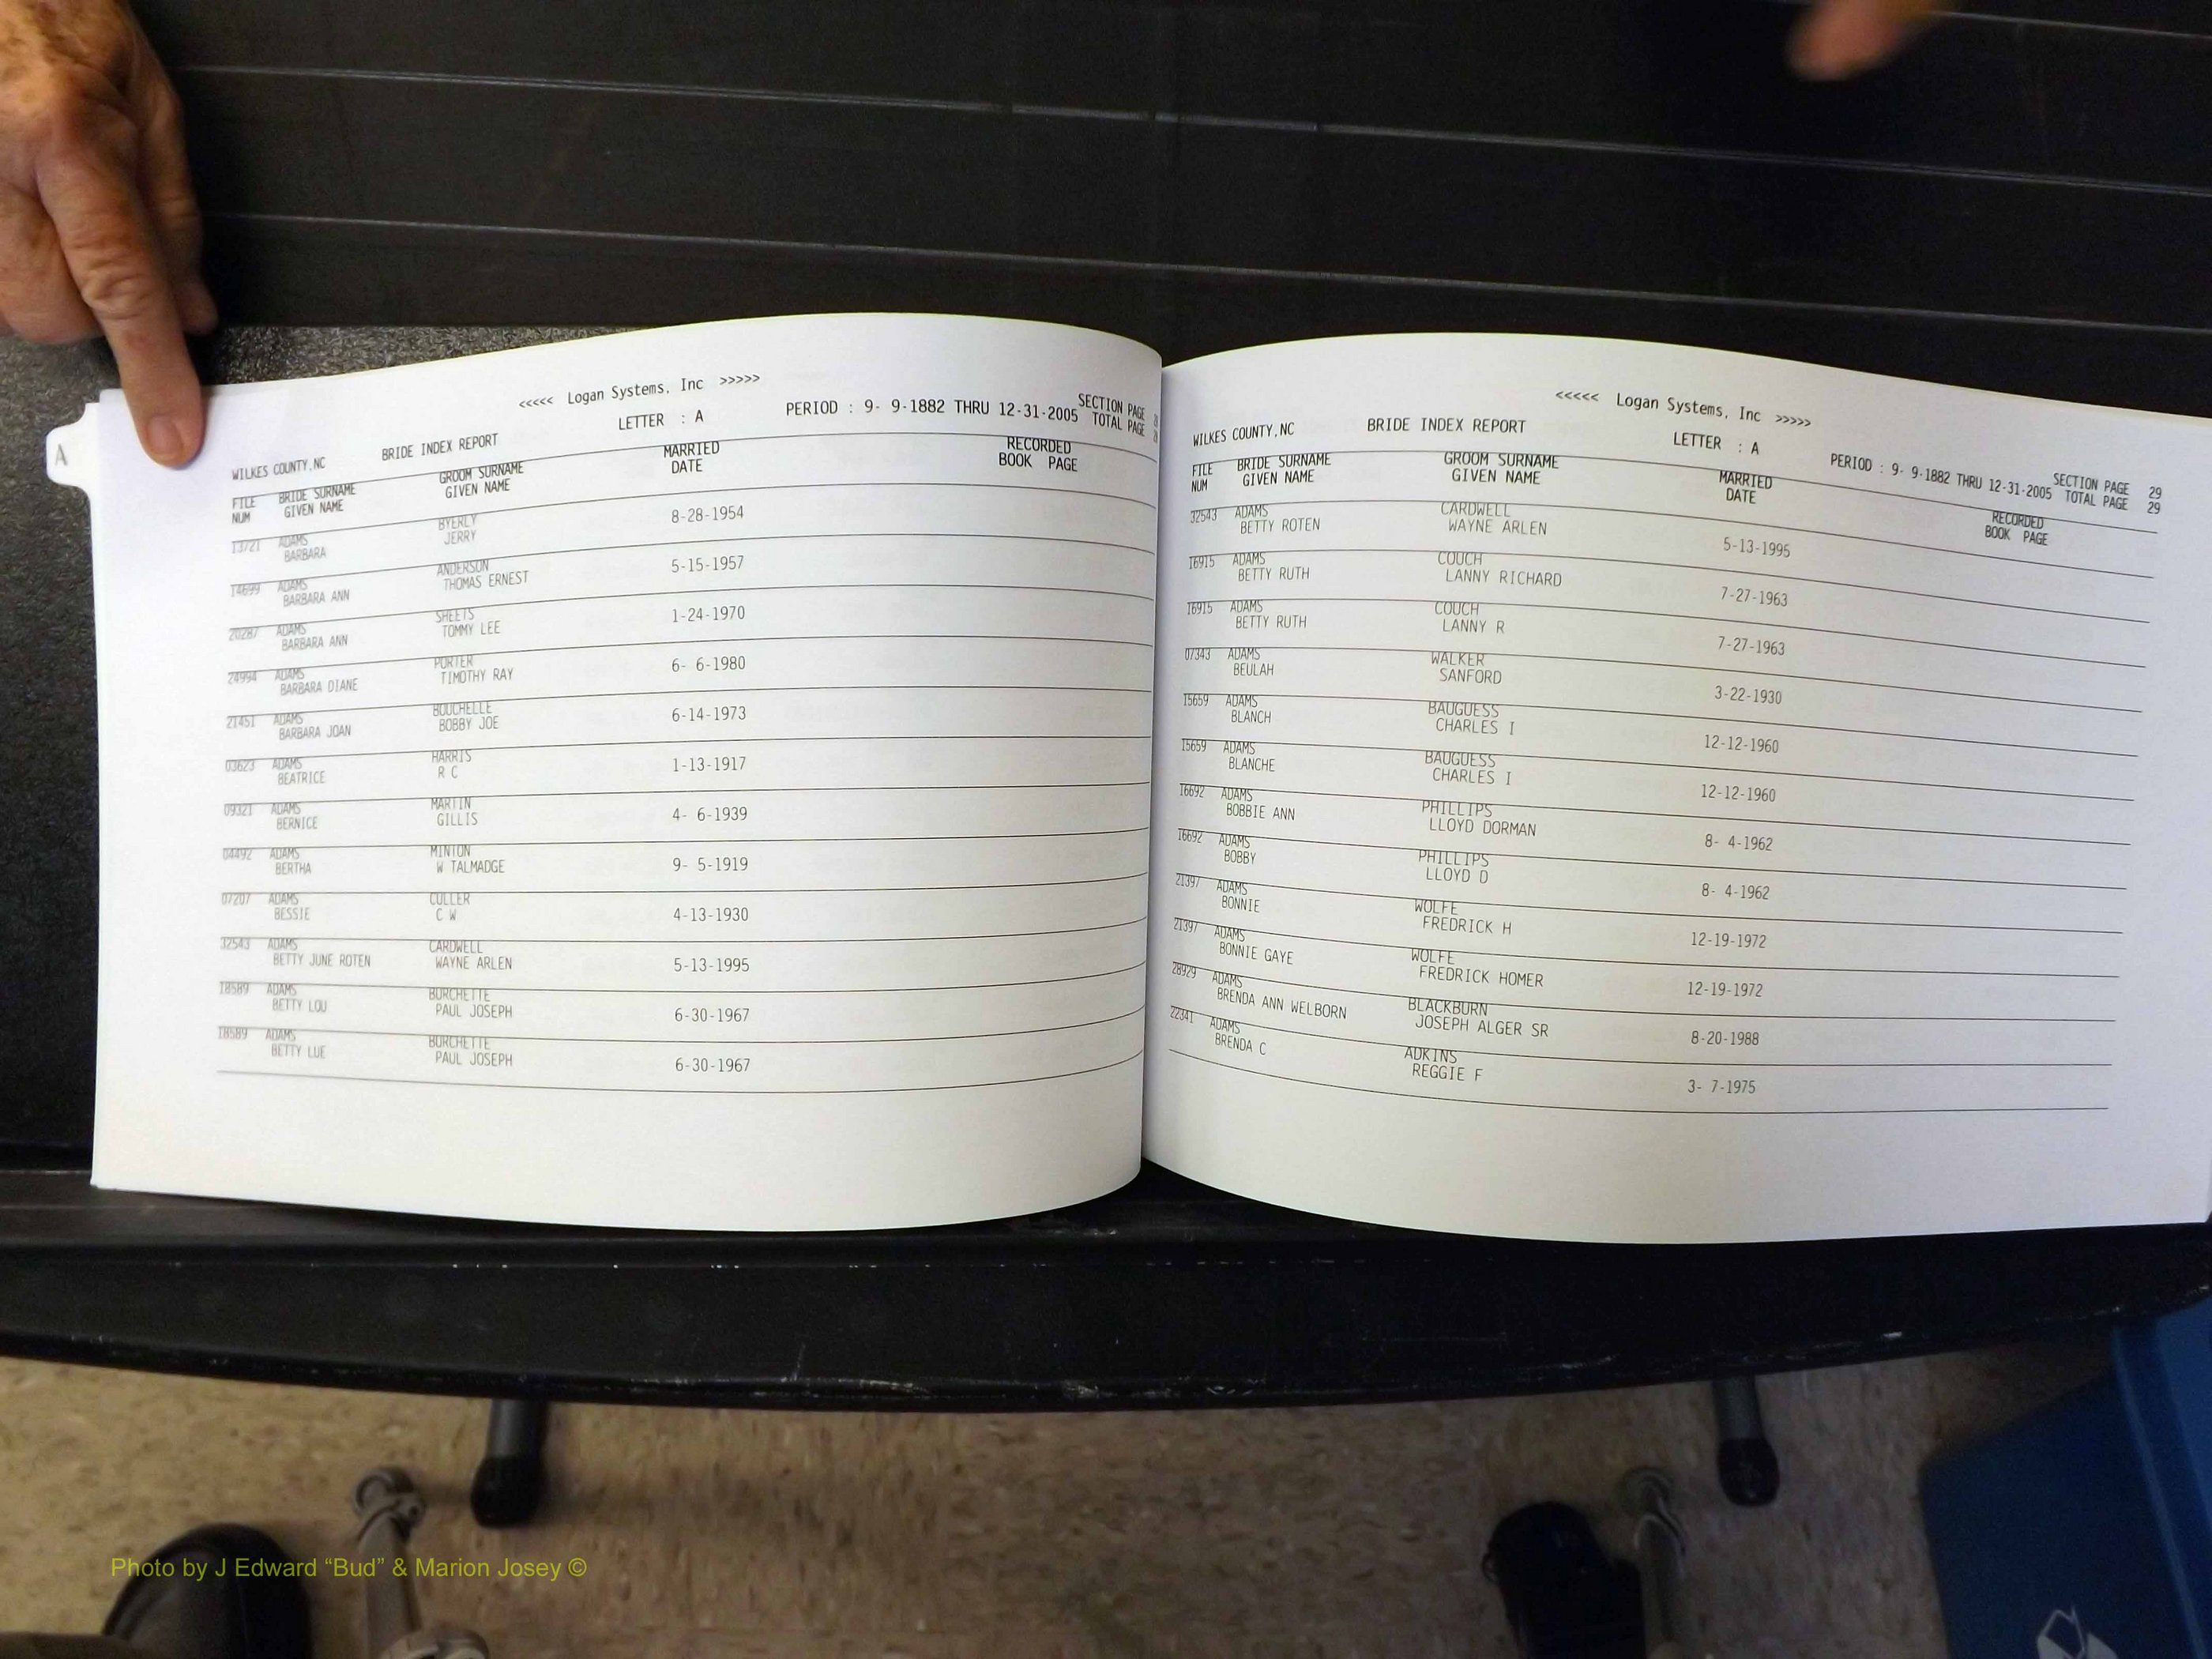 A
<<<<< Logan Systems, Inc >>>>>
WILKES COUNTY,NC BRIDE INDEX REPORT LETTER : A PERIOD : 9- 9-1882 THRU 12-31-2005 SECTION PAGE
TOTAL PAGE
FILE BRIDE SURNAME GROOM SURNAME MARRIED RECORDED
NUM GIVEN NAME GIVEN NAME DATE BOOK PAGE
13721 ADAMS BYERLY
BARBARA JERRY 8-28-1954
14699 ADAMS ANDERSON
BARBARA ANN THOMAS ERNEST 5-15-1957
20287 ADAMS SHEETS
BARBARA ANN TOMMY LEE 1-24-1970
24994 ADAMS PORTER
BARBARA DIANE TIMOTHY RAY 6- 6-1980
21451 ADAMS BOUCHELLE
BARBARA JOAN BOBBY JOE 6-14-1973
03623 ADAMS HARRIS
BEATRICE R C 1-13-1917
09321 ADAMS MARTIN
BERNICE GILLIS 4- 6-1939
04492 ADAMS MINTON
BERTHA W TALMADGE 9- 5-1919
07207 ADAMS CULLER
BESSIE C W 4-13-1930
32543 ADAMS CARDWELL
BETTY JUNE ROTEN WAYNE ARLEN 5-13-1995
18589 ADAMS BURCHETTE
BETTY LOU PAUL JOSEPH 6-30-1967
18589 ADAMS BURCHETTE
BETTY LUE PAUL JOSEPH 6-30-1967
<<<<< Logan Systems, Inc >>>>>
WILKES COUNTY,NC BRIDE INDEX REPORT LETTER : A PERIOD : 9- 9-1882 THRU 12-31-2005 SECTION PAGE 29
TOTAL PAGE 29
FILE BRIDE SURNAME GROOM SURNAME MARRIED RECORDED
NUM GIVEN NAME GIVEN NAME DATE BOOK PAGE
32543 ADAMS CARDWELL
BETTY ROTEN WAYNE ARLEN 5-13-1995
16915 ADAMS COUCH
BETTY RUTH LANNY RICHARD 7-27-1963
16915 ADAMS COUCH
BETTY RUTH LANNY R 7-27-1963
07343 ADAMS WALKER
BEULAH SANFORD 3-22-1930
15659 ADAMS BAUGUESS
BLANCH CHARLES I 12-12-1960
15659 ADAMS BAUGUESS
BLANCHE CHARLES I 12-12-1960
16692 ADAMS PHILLIPS
BOBBIE ANN LLOYD DORMAN 8- 4-1962
16692 ADAMS PHILLIPS
BOBBY LLOYD D 8- 4-1962
21397 ADAMS WOLFE
BONNIE FREDRICK H 12-19-1972
21397 ADAMS WOLFE
BONNIE GAYE FREDRICK HOMER 12-19-1972
28929 ADAMS BLACKBURN
BRENDA ANN WELBORN JOSEPH ALGER SR 8-20-1988
22341 ADAMS ADKINS
BRENDA C REGGIE F 3- 7-1975
Photo by J Edward “Bud” & Marion Josey ©